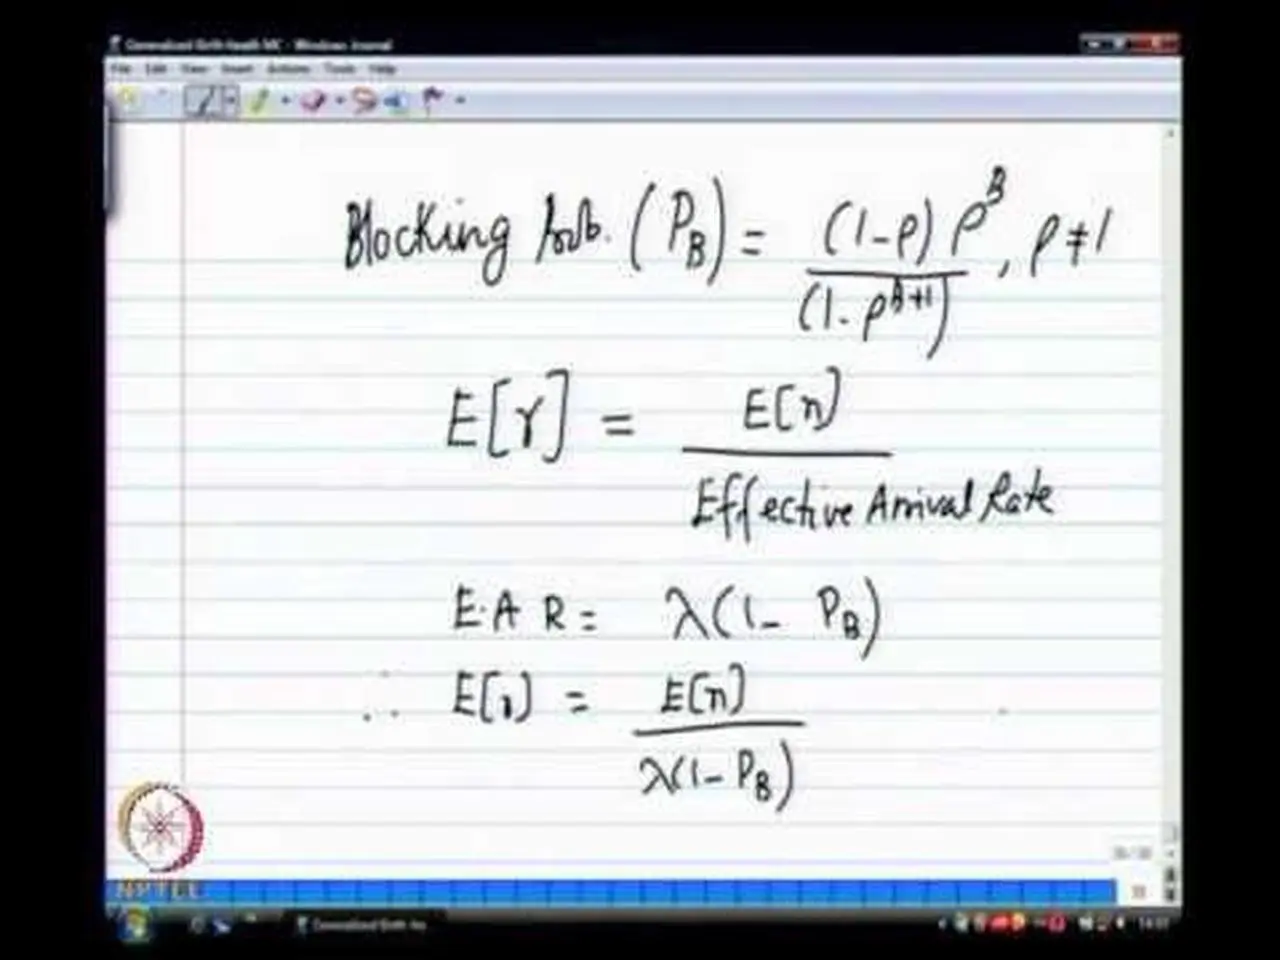 Generalized Birth Death MC - Windows Journal
File Edit View Insert Actions Tools Help
Blocking Prob. (P_B) = (1-ρ) ρ^B / (1-ρ^{B+1}) , ρ ≠ 1
E[r] = E[n] / Effective Arrival Rate
E.A R = λ(1- P_B)
∴ E[r] = E[n] / λ(1- P_B)
NPTEL